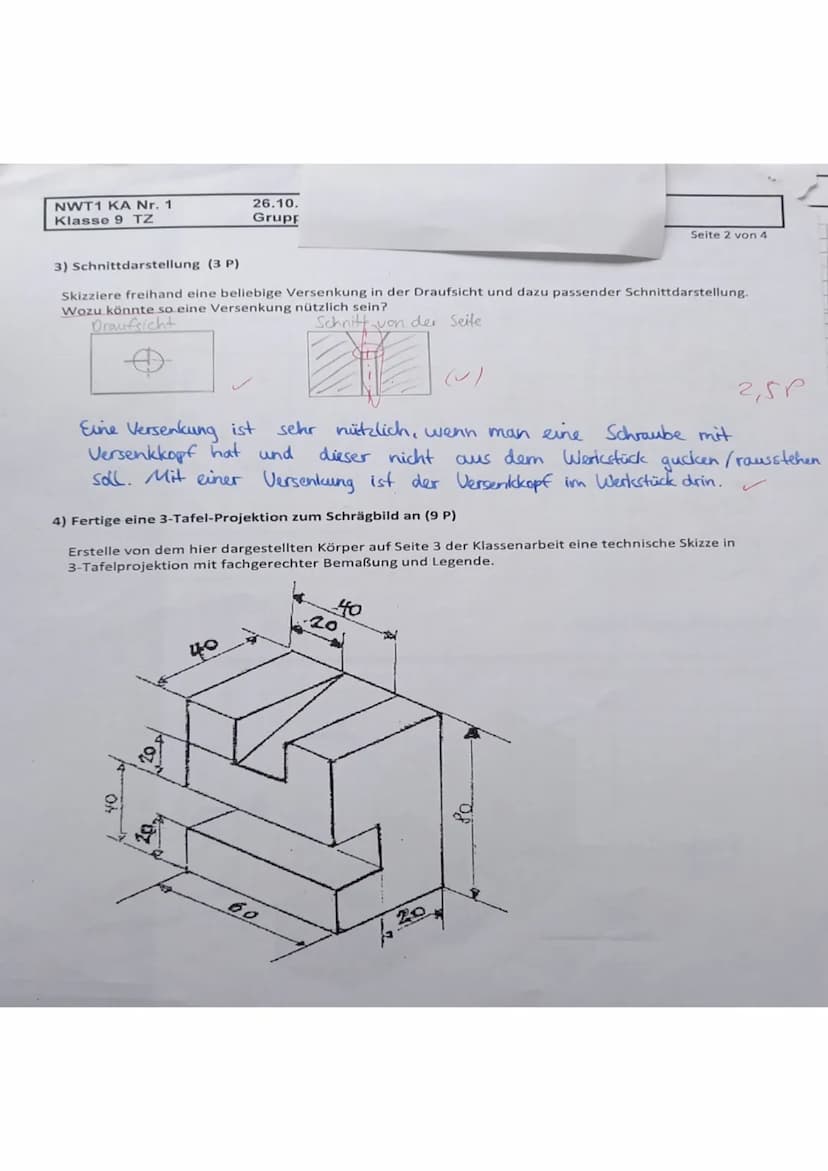 NWT1 KA Nr. 1
26.10.
Klasse 9 TZ
Seite 2 von 4
3) Schnittdarstellung (3 P)
Skizziere freihand eine beliebige Versenkung in der Draufsicht und dazu passender Schnittdarstellung.
Wozu könnte so eine Versenkung nützlich sein?
Draufsicht
Schnitt von der Seite
2,5P
Eine Versenkung ist sehr nützlich, wenn man eine Schraube mit
Versenkkopf hat und dieser nicht aus dem Werkstück gucken/rausstehen
soll. Mit einer Versenkung ist der Versenkkopf im Werkstück drin.
4) Fertige eine 3-Tafel-Projektion zum Schrägbild an (9 P)
Erstelle von dem hier dargestellten Körper auf Seite 3 der Klassenarbeit eine technische Skizze in
3-Tafelprojektion mit fachgerechter Bemaßung und Legende.
40
20
40
20
40
20
80
60
20